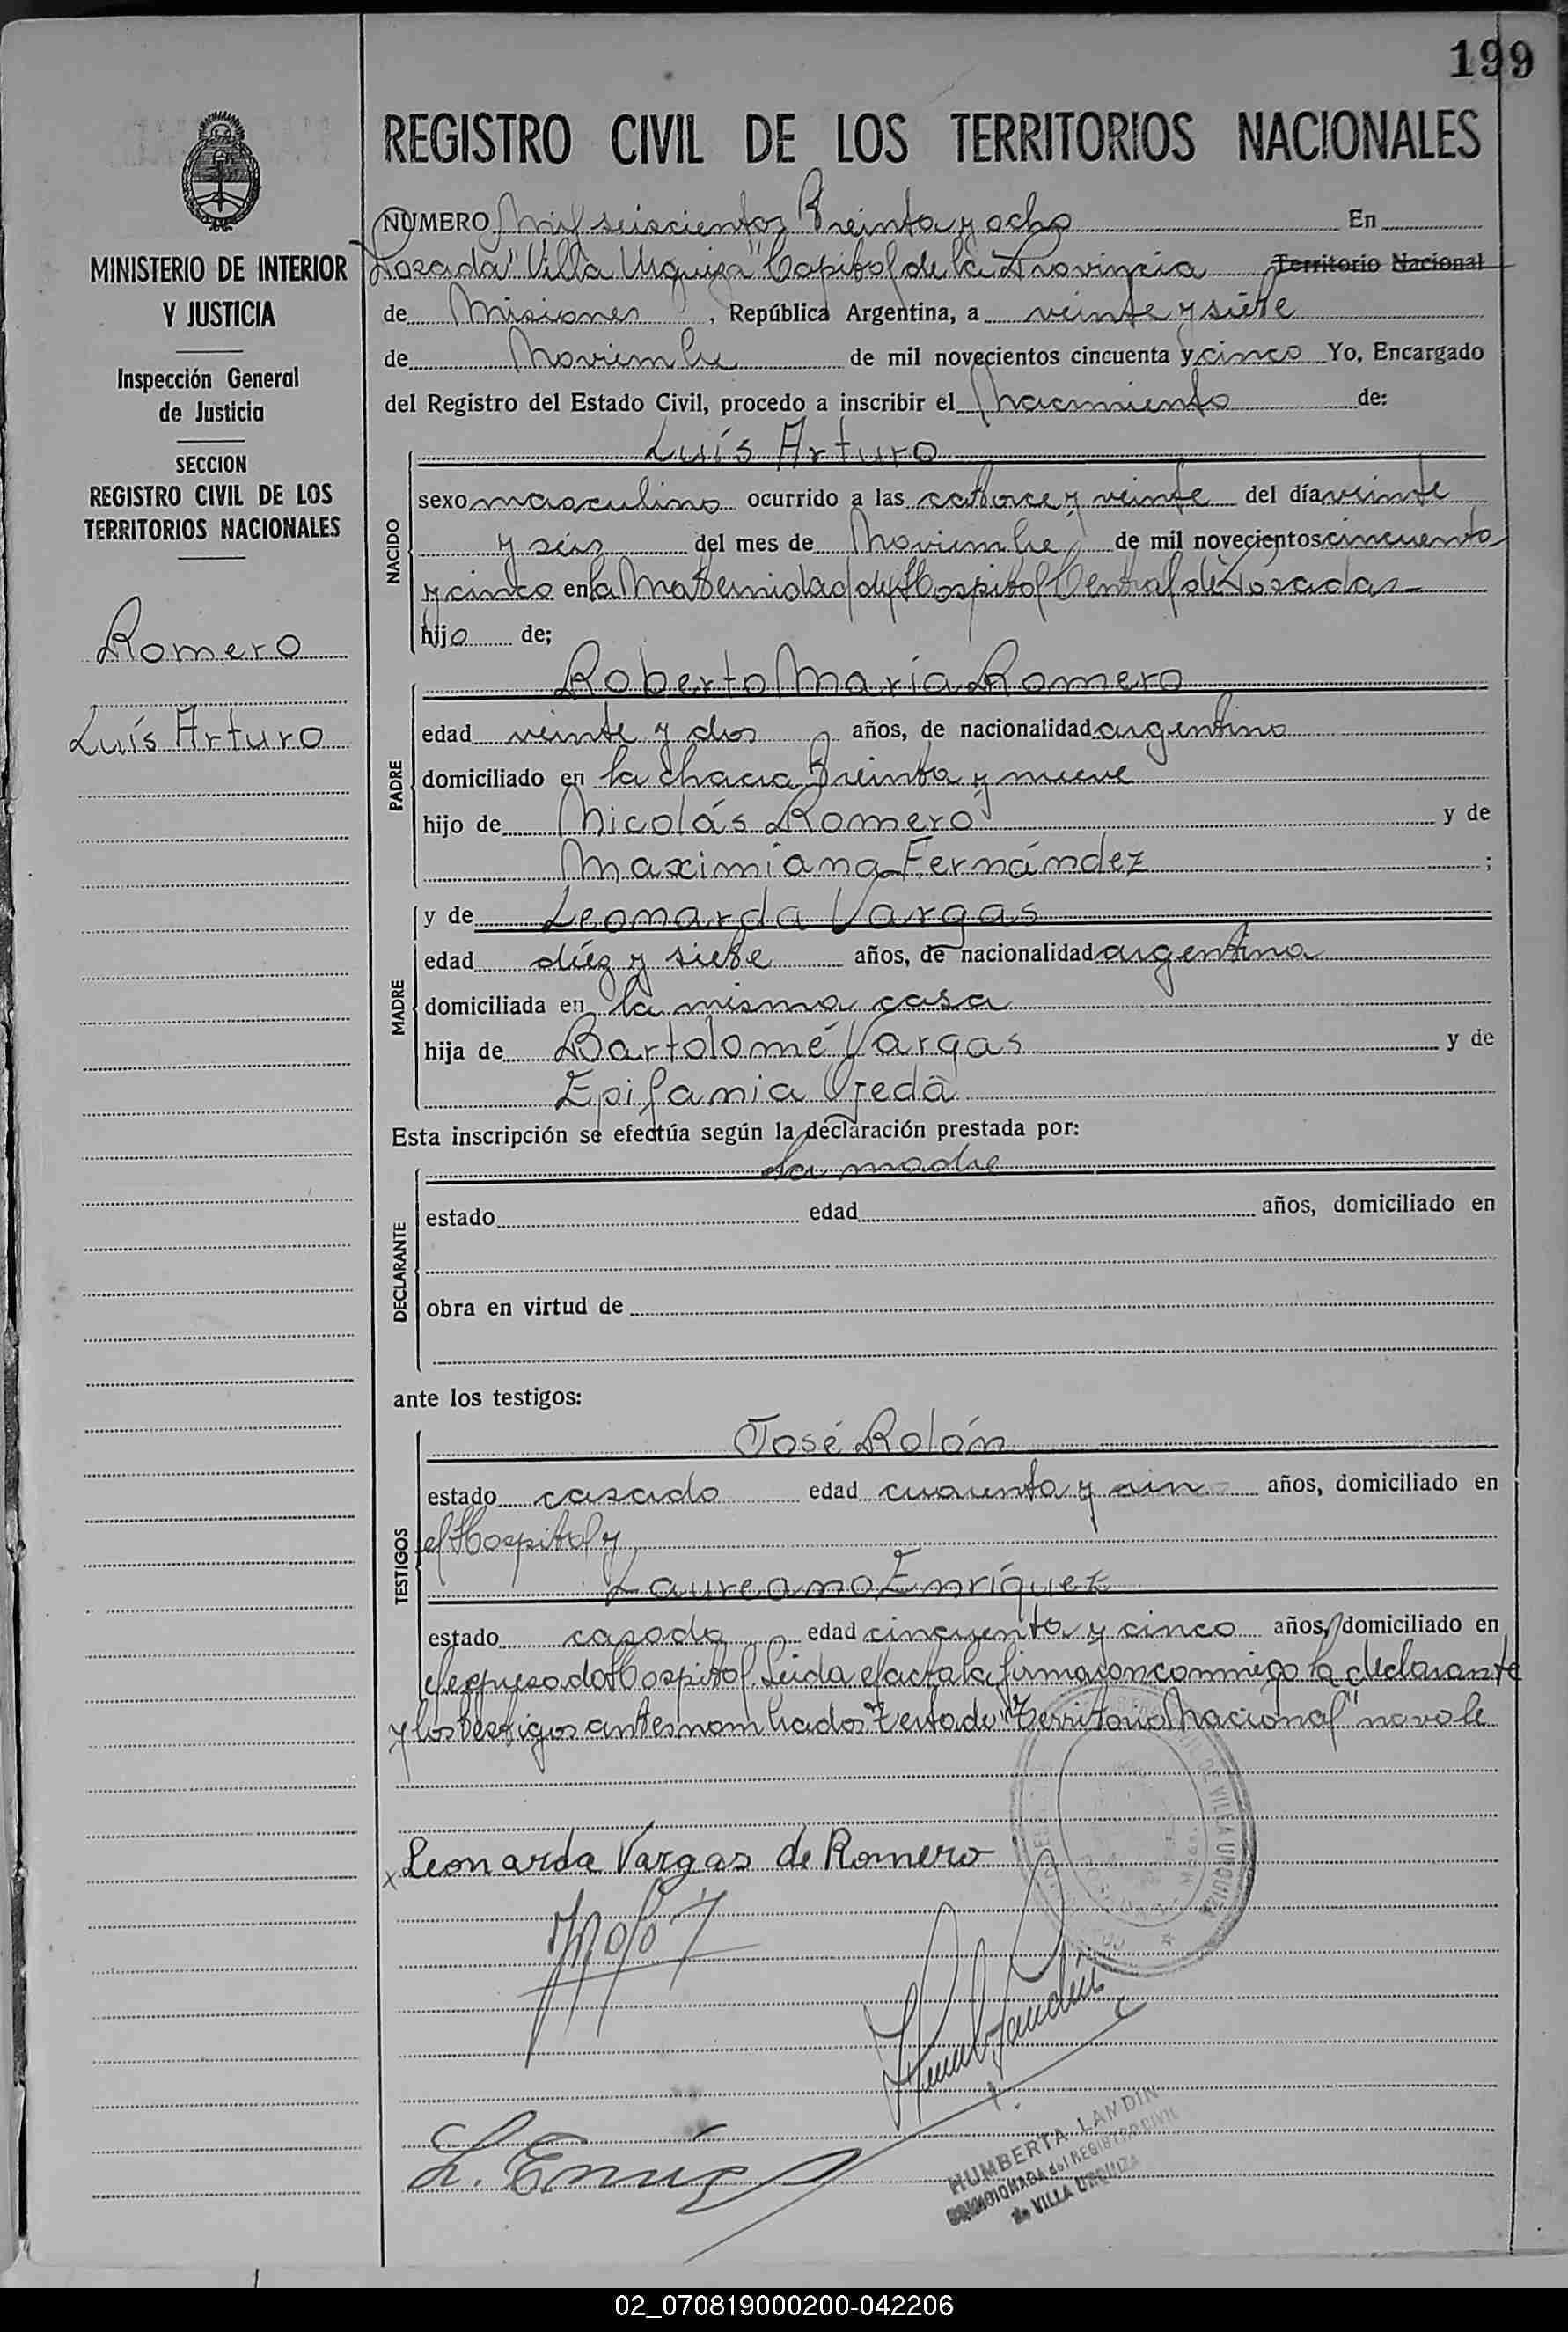 199
REGISTRO CIVIL DE LOS TERRITORIOS NACIONALES
MINISTERIO DE INTERIOR
Y JUSTICIA
Inspección General
de Justicia
SECCION
REGISTRO CIVIL DE LOS
TERRITORIOS NACIONALES
Romero
Luís Arturo
NUMERO Mil seiscientos Treinta y ocho En
Posadas "Villa Urquiza" Capital de la Provincia Territorio Nacional
de Misiones, República Argentina, a veinte y siete
de Noviembre de mil novecientos cincuenta y cinco Yo, Encargado
del Registro del Estado Civil, procedo a inscribir el Nacimiento de:
NACIDO
Luís Arturo
sexo masculino ocurrido a las catorce y veinte del día veinte
y seis del mes de Noviembre de mil novecientos cincuenta
y cinco en la Maternidad del Hospital Central de Posadas-
hijo de;
PADRE
Roberto María Romero
edad veinte y dos años, de nacionalidad argentino
domiciliado en la chacra Treinta y nueve
hijo de Nicolás Romero y de
Maximiana Fernández ;
MADRE
y de Leonarda Vargas
edad diéz y siete años, de nacionalidad argentina
domiciliada en la misma casa
hija de Bartolomé Vargas y de
Epifania Ojeda
Esta inscripción se efectúa según la declaración prestada por:
DECLARANTE
La madre
estado edad años, domiciliado en
obra en virtud de
ante los testigos:
TESTIGOS
José Rolón
estado casado edad cuarenta y años, domiciliado en
el Hospital y
Laureano Enríquez
estado casado edad cincuenta y cinco años, domiciliado en
el Hospital. Leida el acta la firmaron conmigo la declarante
y los testigos antes nombrados. Testado: "Territorio Nacional" no vale
x Leonarda Vargas de Romero
L. Enríq
HUMBERTA LANDIN
COMISIONADA del REGISTRO CIVIL
de VILLA URQUIZA
02_070819000200-042206